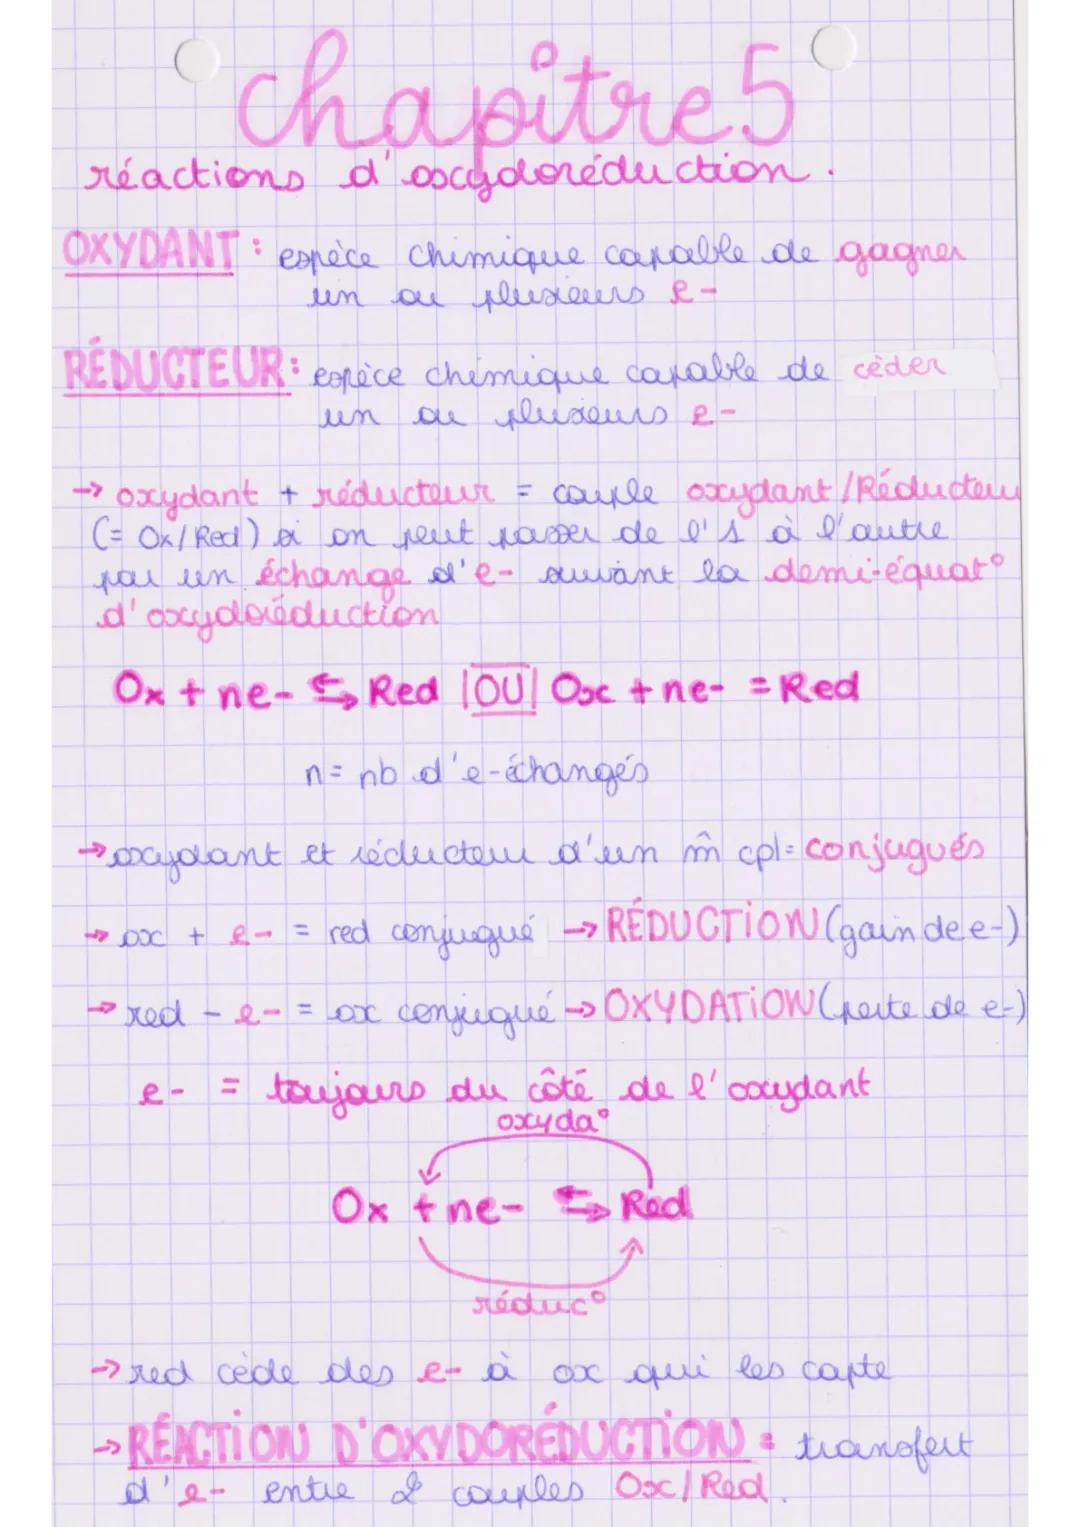 chapitre 5
réactions d'oxydoréduction.
OXYDANT : espèce chimique capable de gagner
un ou plusieurs e-
RÉDUCTEUR : espèce chimique capable de céder
un ou plusieurs e-
→ oxydant + réducteur = couple oxydant/Réducteur
(= Ox/Red) si on peut passer de l'1 à l'autre
par un échange d'e- suivant la demi-équat°
d'oxydoréduction
Ox + ne- ⇆ Red |OU| Ox + ne- = Red
n = nb d'e- échangés
→ oxydant et réducteur d'un m̂ cpl = conjugués
→ ox + e- = red conjugué → RÉDUCTION (gain de e-)
→ red - e- = ox conjugué → OXYDATION (perte de e-)
e- = toujours du côté de l'oxydant
oxyda°
Ox + ne- ⇆ Red
réduc°
→ red cède des e- à ox qui les capte
→ RÉACTION D'OXYDORÉDUCTION = transfert
d'e- entre 2 couples Ox/Red.